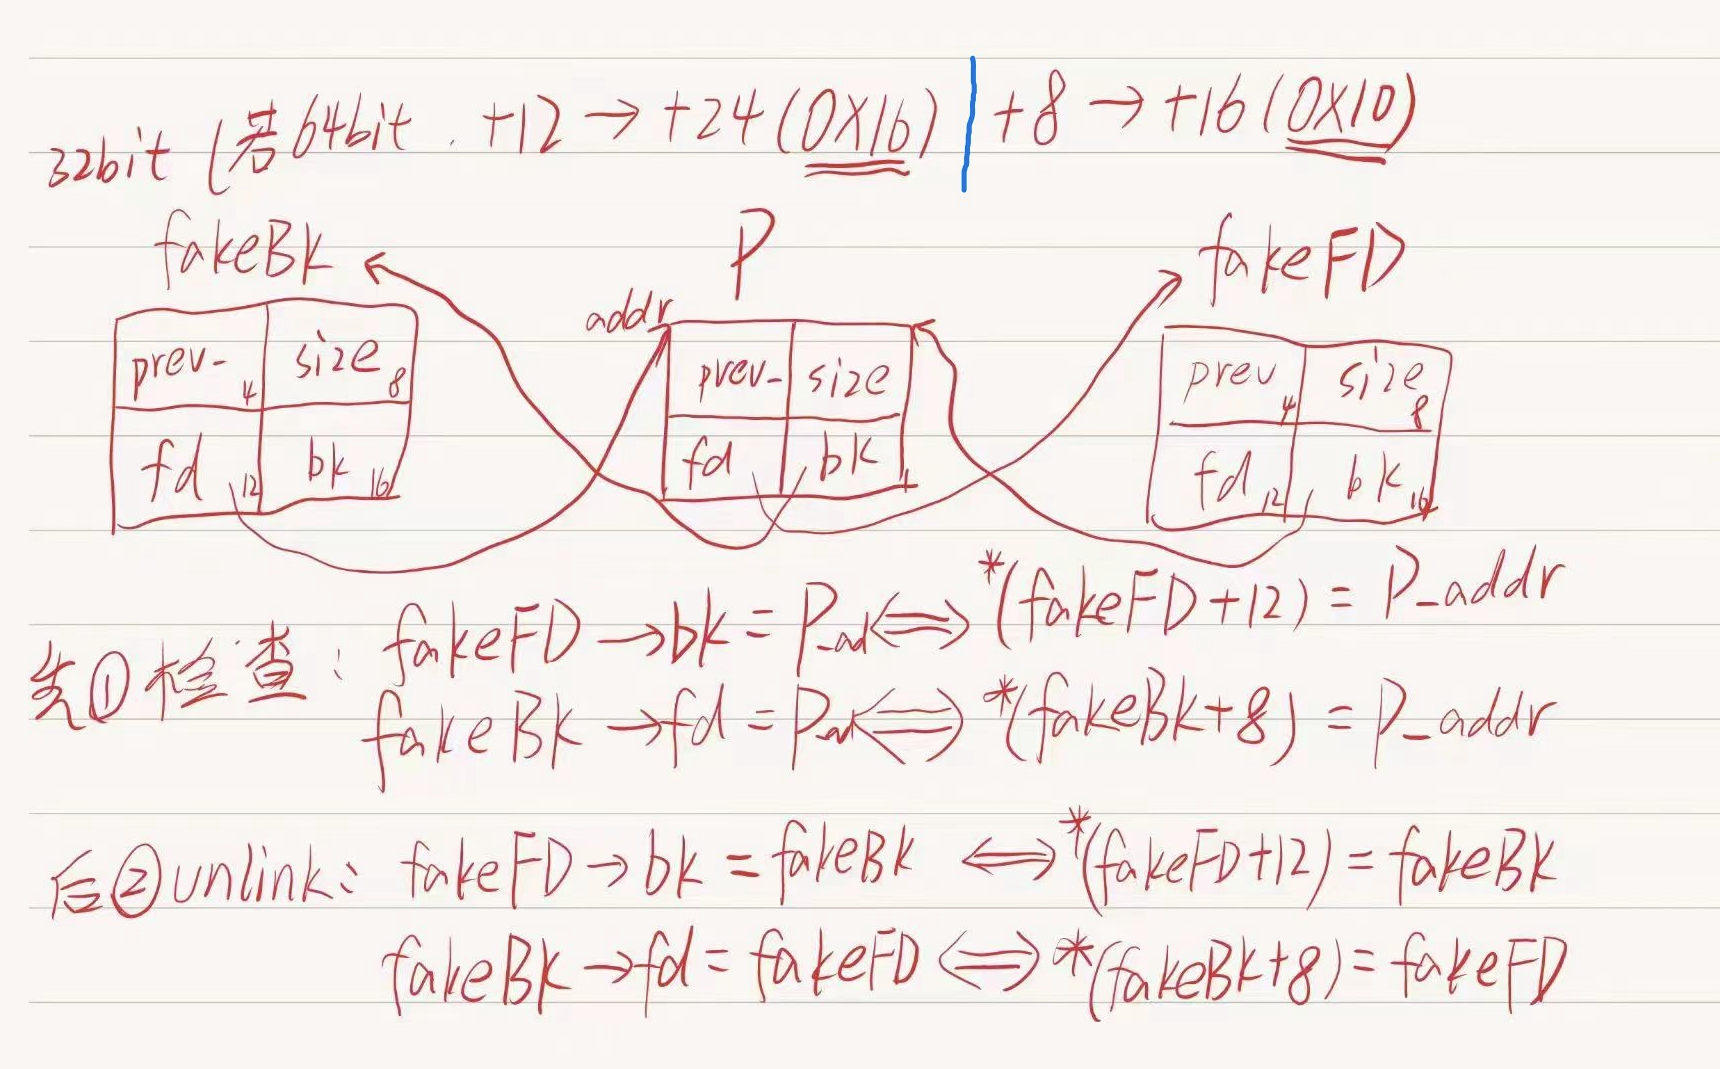 32bit (若64bit. +12 → +24 (0X16) | +8 → +16 (0X10)
fakeBk P fakeFD
addr
prev- 4 size 8 prev- size prev 4 size 8
fd 12 bk 16 fd bk fd 12 bk 16
先①检查: fakeFD → bk = P_ad ⟺ *(fakeFD+12) = P_addr
fakeBk → fd = P_ad ⟺ *(fakeBk+8) = P_addr
后②unlink: fakeFD → bk = fakeBk ⟺ *(fakeFD+12) = fakeBk
fakeBk → fd = fakeFD ⟺ *(fakeBk+8) = fakeFD